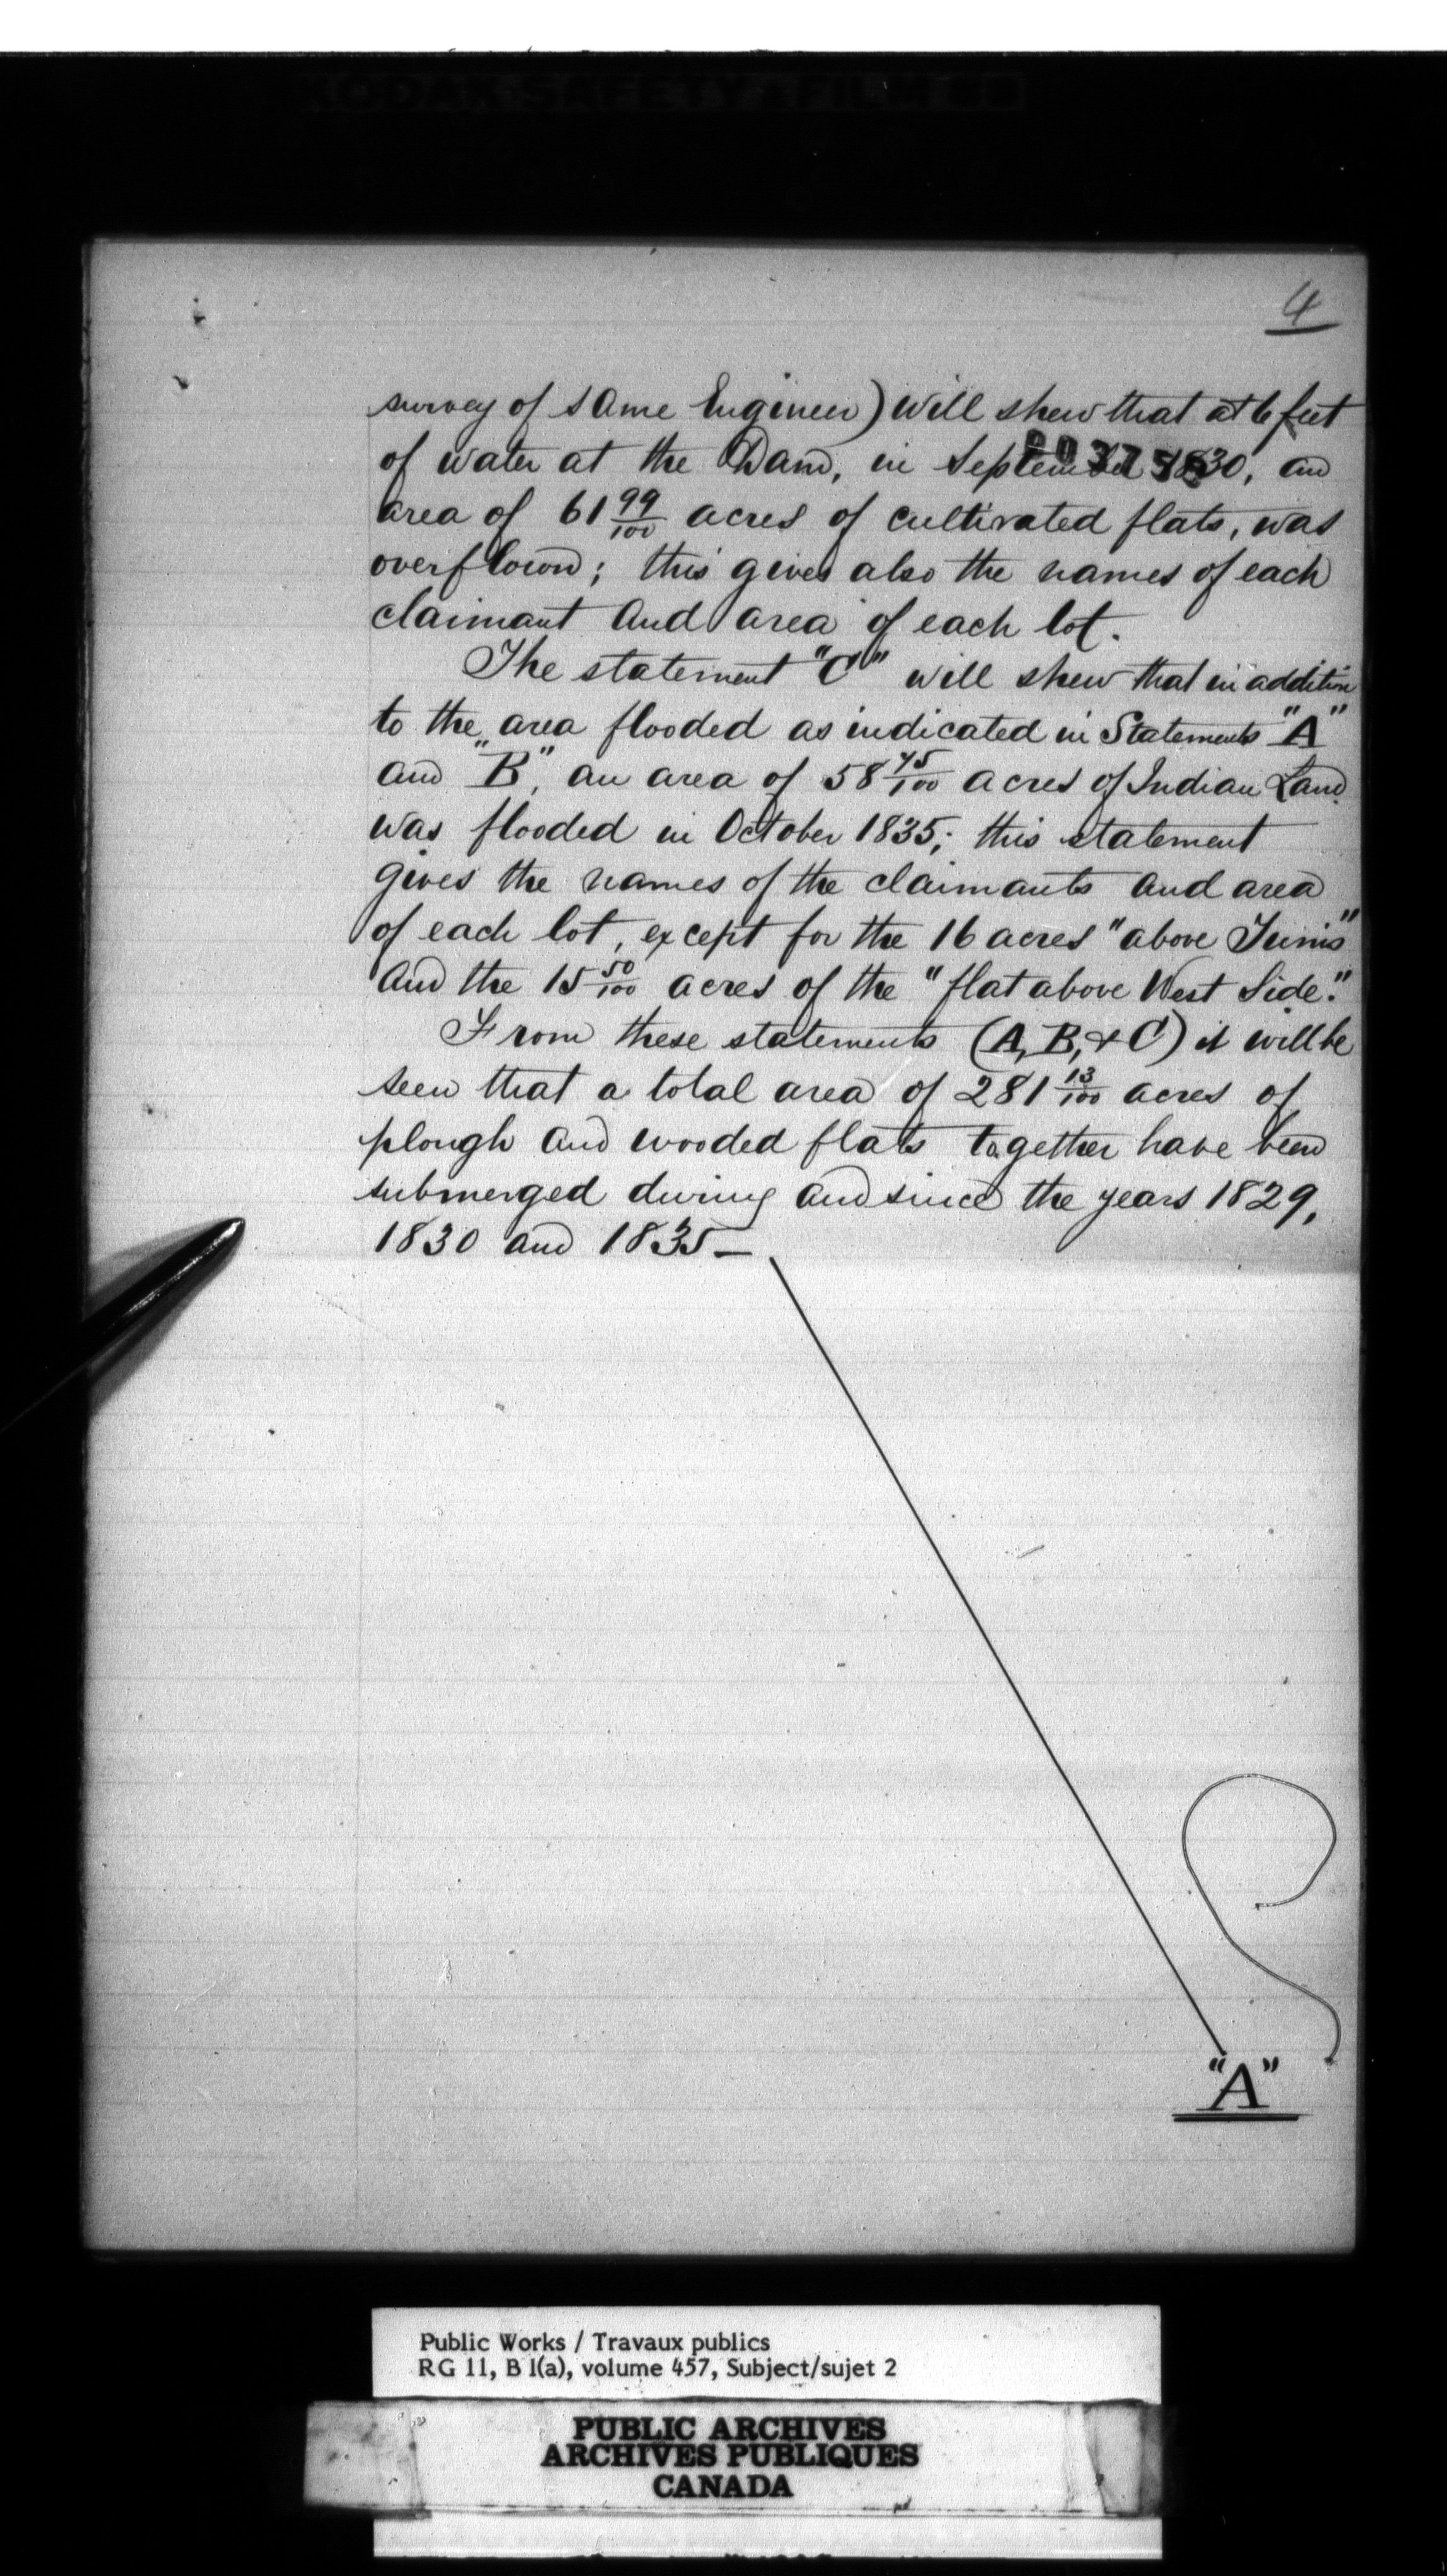 4
survey of same Engineer) will shew that at 6 feet
of water at the Dam, in September 1830, an
area of 61 99/100 acres of cultivated flats, was
overflown; this gives also the names of each
claimant and area of each lot.
The statement "C" will shew that in addition
to the area flooded as indicated in Statements "A"
and "B", an area of 58 45/100 acres of Indian Land
was flooded in October 1835; this statement
gives the names of the claimants and area
of each lot, except for the 16 acres "above
and the 15 50/100 acres of the "flat above West Side."
From these statements (A, B, & C) it will be
seen that a total area of 281 13/100 acres of
plough and wooded flats together have been
submerged during and since the years 1829,
1830 and 1835—
"A"
Public Works / Travaux publics
RG 11, B 1(a), volume 457, Subject/sujet 2
PUBLIC ARCHIVES
ARCHIVES PUBLIQUES
CANADA